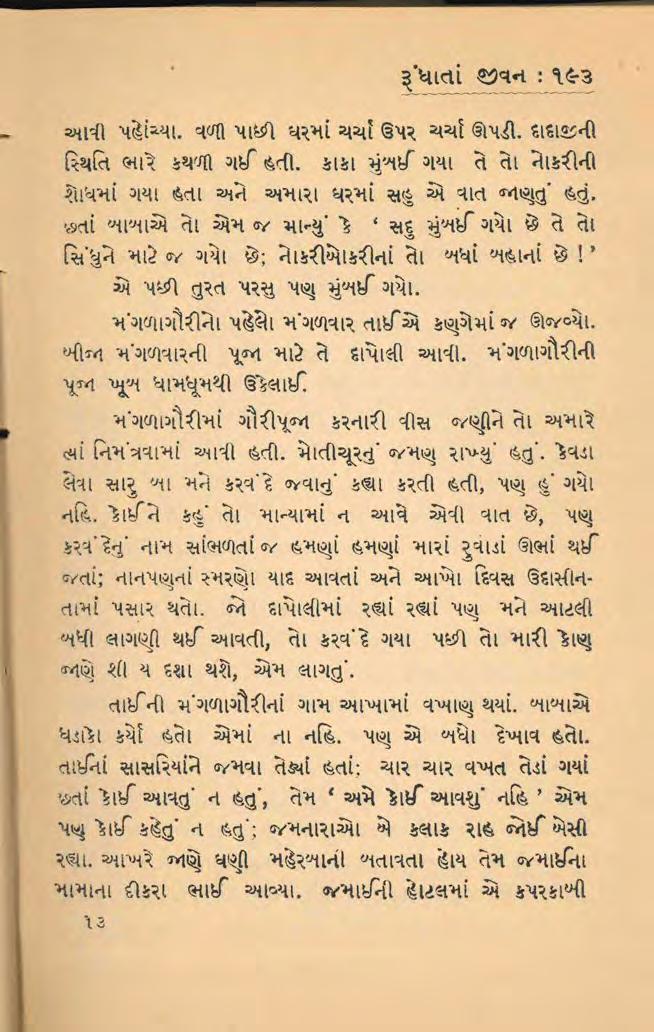 રૂંધાતાં જીવન : ૧૯૩
આવી પહોંચ્યા. વળી પાછી ઘરમાં ચર્ચા ઉપર ચર્ચા ઊપડી. દાદાજીની
સ્થિતિ ભારે કથળી ગઈ હતી. કાકા મુંબઈ ગયા તે તો નોકરીની
શોધમાં ગયા હતા અને અમારા ઘરમાં સહુ એ વાત જાણતું હતું.
છતાં બાબાએ તો એમ જ માન્યું કે ‘ સદુ મુંબઈ ગયો છે તે તો
સિંધુને માટે જ ગયો છે; નોકરીબોકરીનાં તો બધાં બહાનાં છે ! ’
એ પછી તુરત પરસુ પણ મુંબઈ ગયો.
મંગળાગૌરીનો પહેલો મંગળવાર તાઈએ કણગેમાં જ ઊજવ્યો.
બીજા મંગળવારની પૂજા માટે તે દાપોલી આવી. મંગળાગૌરીની
પૂજા ખૂબ ધામધૂમથી ઉકેલાઈ.
મંગળાગૌરીમાં ગૌરીપૂજા કરનારી વીસ જણીને તો અમારે
ત્યાં નિમંત્રવામાં આવી હતી. મોતીચૂરનું જમણ રાખ્યું હતું. કેવડા
લેવા સારુ બા મને કરવંદે જવાનું કહ્યા કરતી હતી, પણ હું ગયો
નહિ. કોઈને કહું તો માન્યામાં ન આવે એવી વાત છે, પણ
કરવંદેનું નામ સાંભળતાં જ હમણાં હમણાં મારાં રુવાડાં ઊભાં થઈ
જતાં; નાનપણનાં સ્મરણો યાદ આવતાં અને આખો દિવસ ઉદાસીન-
તામાં પસાર થતો. જો દાપોલીમાં રહ્યાં રહ્યાં પણ મને આટલી
બધી લાગણી થઈ આવતી, તો કરવંદે ગયા પછી તો મારી કોણ
જાણે શી ય દશા થશે, એમ લાગતું.
તાઈની મંગળાગૌરીનાં ગામ આખામાં વખાણ થયાં. બાબાએ
ધડાકો કર્યો હતો એમાં ના નહિ. પણ એ બધો દેખાવ હતો.
તાઈનાં સાસરિયાંને જમવા તેડ્યાં હતાં; ચાર ચાર વખત તેડાં ગયાં
છતાં કોઈ આવતું ન હતું, તેમ ‘ અમે કોઈ આવશું નહિ ’ એમ
પણ કોઈ કહેતું ન હતું; જમનારાઓ બે કલાક રાહ જોઈ બેસી
રહ્યા. આખરે જાણે ઘણી મહેરબાની બતાવતા હોય તેમ જમાઈના
મામાના દીકરા ભાઈ આવ્યા. જમાઈની હોટલમાં એ કપરકાબી
૧૩